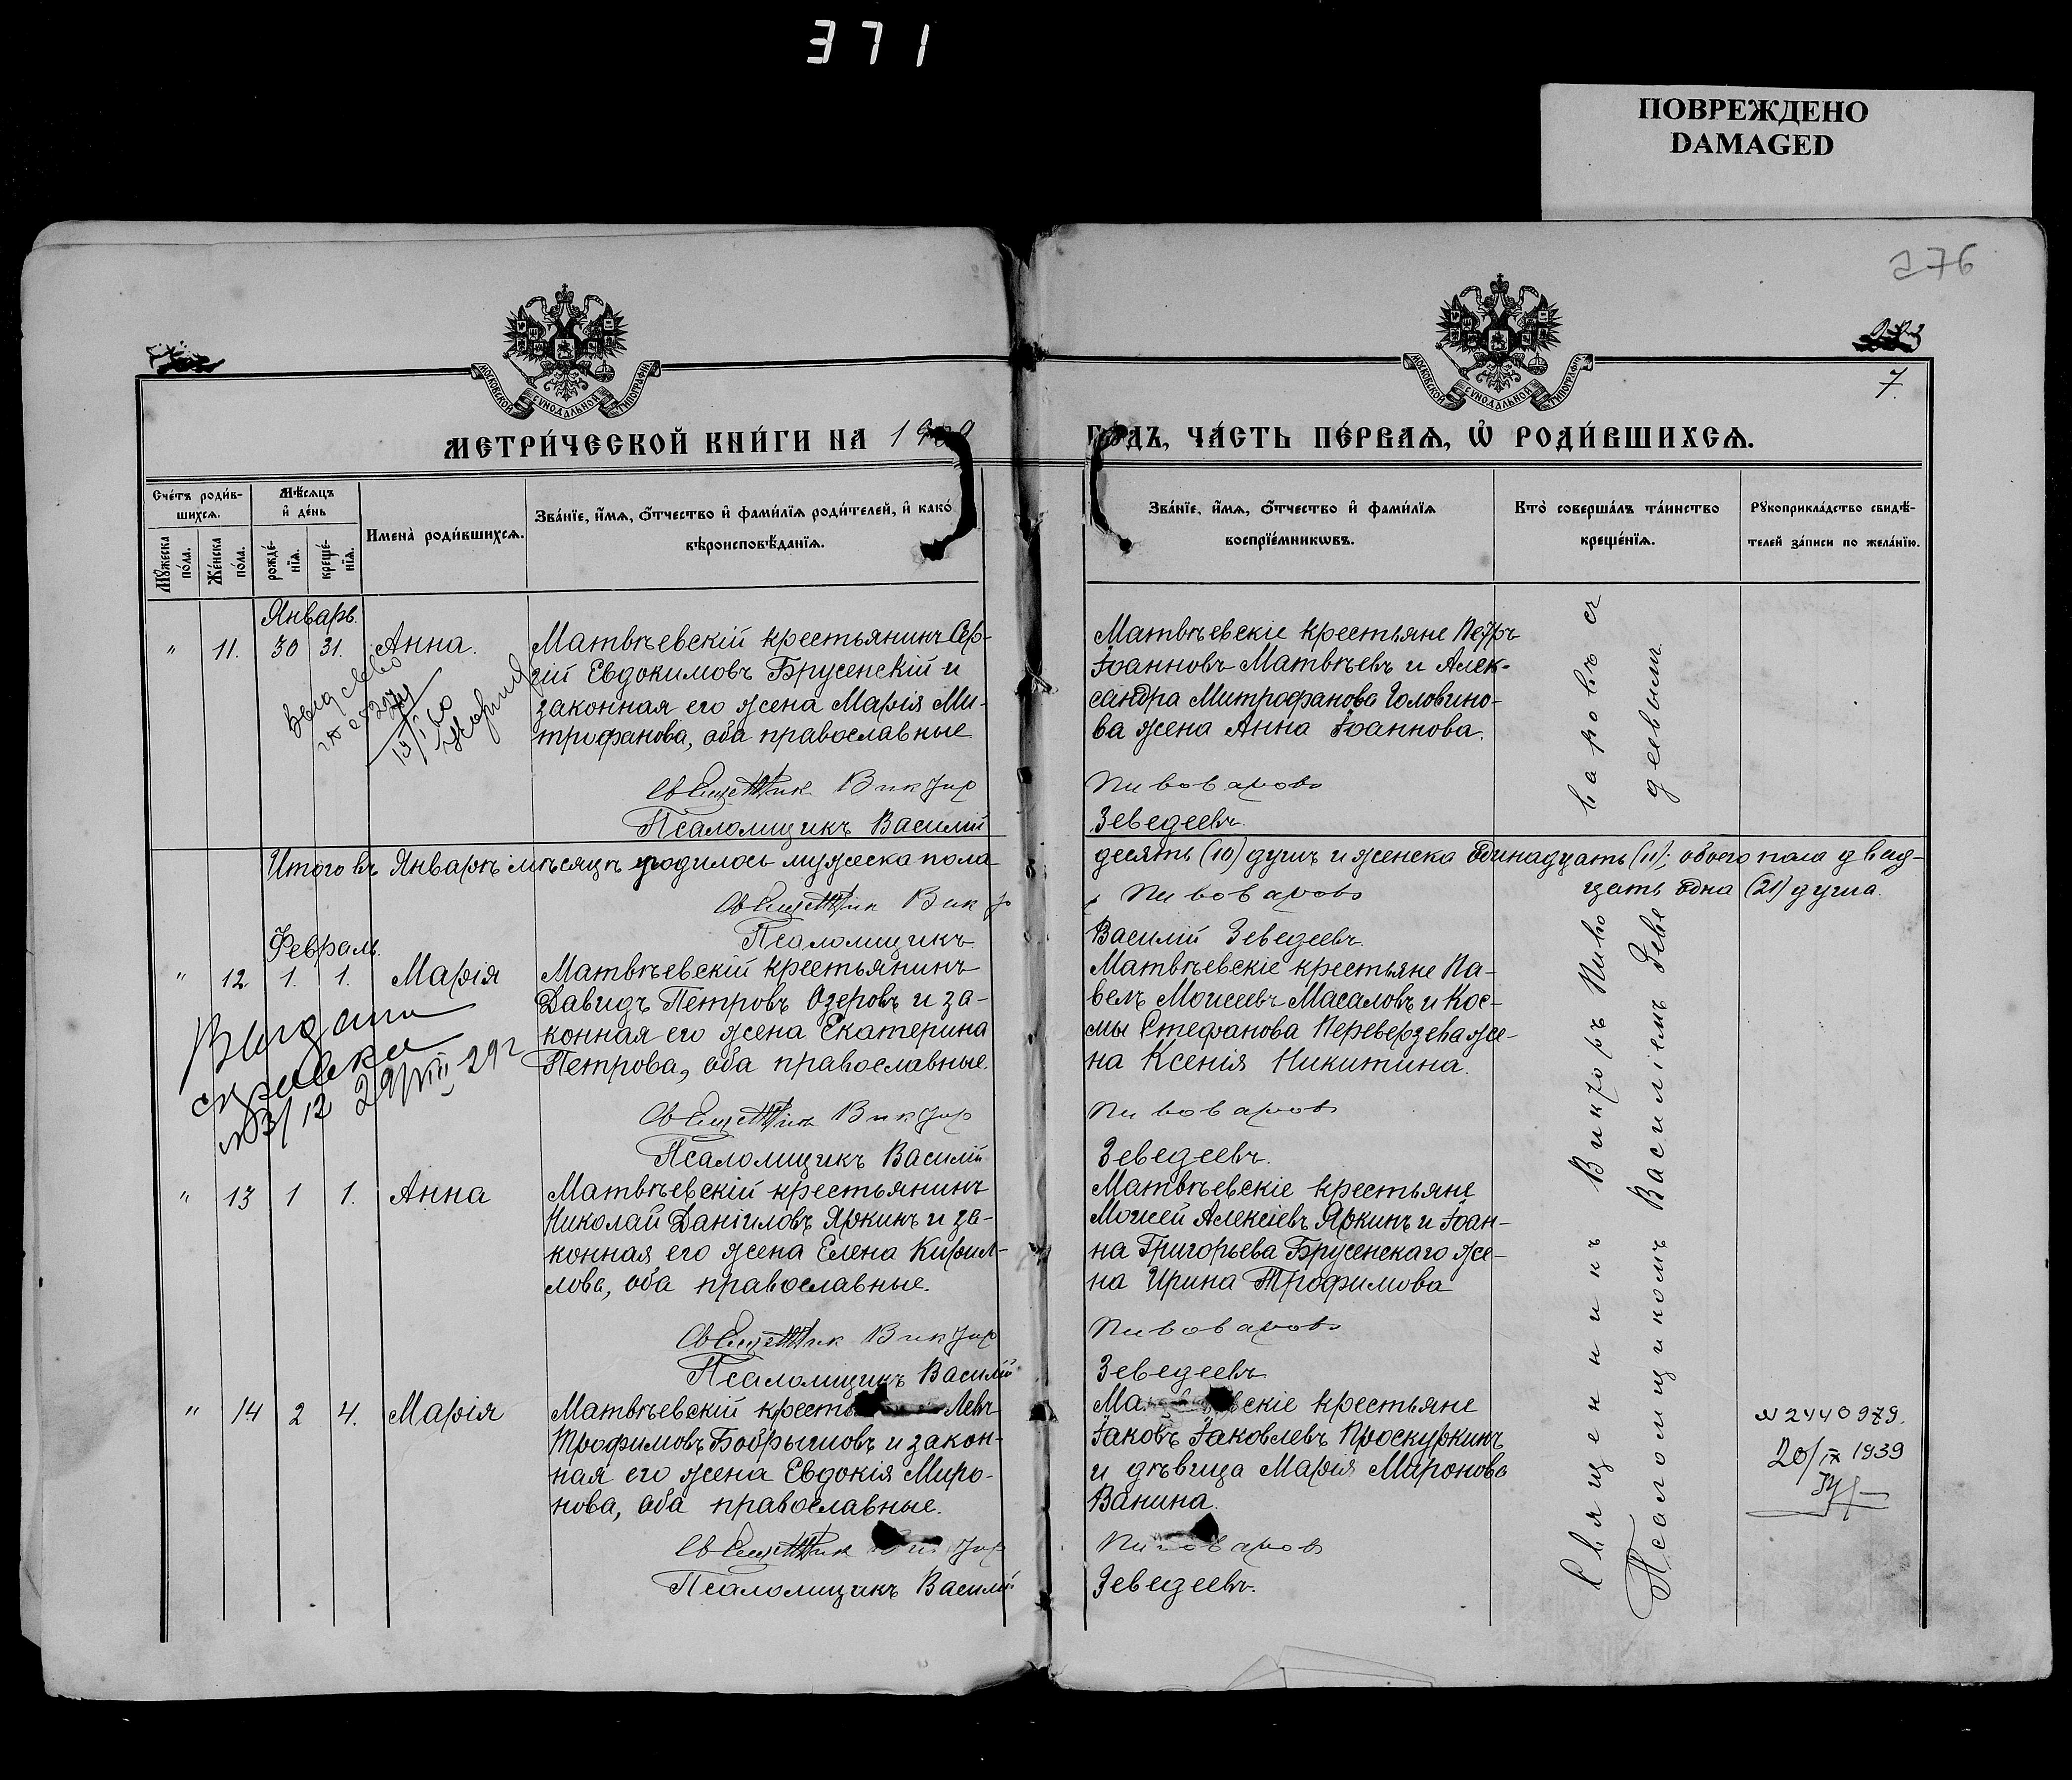 371
ПОВРЕЖДЕНО
DAMAGED
276
7.
МОСКОВСКОЙ СѴНОДАЛЬНОЙ ТИПОГРАФІИ
МОСКОВСКОЙ СѴНОДАЛЬНОЙ ТИПОГРАФІИ
МЕТРИ́ЧЕСКОЙ КНИ́ГИ НА 19
ГОДЪ, ЧА́СТЬ ПЕ́РВАѦ, Ѡ҆ РОДИ́ВШИХСѦ.
Сче́тъ роди́в-
шихсѧ.
Мꙋ́жеска по́ла.
Же́нска по́ла.
Мѣ́сѧцъ
и҆ де́нь
рожде́-
нїѧ.
креще́-
нїѧ.
Имена̀ роди́вшихсѧ.
Зва́нїе, и҆́мѧ, ѻ҆́тчество и҆ фами́лїѧ роди́телей, и҆ како́
вѣроисповѣ́данїѧ.
Зва́нїе, и҆́мѧ, ѻ҆́тчество и҆ фами́лїѧ
воспрїе́мникѡвъ.
Кто̀ соверша́лъ та́инство
креще́нїѧ.
Рꙋкоприкла́дство свидѣ́-
телей за́писи по жела́нїю.
Январь.
" 11. 30 31. Анна.
Матвѣевскій крестьянинъ Сер-
гій Евдокимовъ Брусенскій и
законная его жена Марія Ми-
трофанова, оба православные
Священник Виктор
Псаломщикъ Василій
Матвѣевскіе крестьяне Петръ
Іоанновъ Матвѣевъ и Алек-
сандра Митрофанова Головино-
ва жена Анна Іоаннова.
Пивоваровъ
Зеведеевъ.
Итого въ Январѣ мѣсяцѣ родилось мужеска пола
десять (10) душъ и женска одинадцать (11); обоего пола двад-
цать одна (21) душа.
Священник Виктор
Пивоваровъ
Псаломщикъ
Василій Зеведеевъ.
Февраль.
" 12. 1. 1. Марія
Матвѣевскій крестьянинъ
Давидъ Петровъ Озеровъ и за-
конная его жена Екатерина
Петрова, оба православные.
Священник Виктор
Псаломщикъ Василій
Матвѣевскіе крестьяне Па-
велъ Моисеевъ Масаловъ и Кос-
мы Стефанова Переверзева же-
на Ксенія Никитина.
Пивоваровъ
Зеведеевъ.
Выдана
справка
№3/12 29/VIII-29г
" 13 1 1. Анна
Матвѣевскій крестьянинъ
Николай Даніиловъ Яркинъ и за-
конная его жена Елена Кирил-
лова, оба православные.
Священник Виктор
Псаломщикъ Василій
Матвѣевскіе крестьяне
Моисей Алексіевъ Яркинъ и Іоан-
на Григорьева Брусенскаго же-
на Ирина Трофимова
Пивоваровъ
Зеведеевъ
" 14 2 4. Марія
Матвѣевскій Левъ
Трофимовъ Бобрышовъ и закон-
ная его жена Евдокія Миро-
нова, оба православные.
Священник
Псаломщикъ Василій
крестьяне
Іаковъ Іаковлевъ Проскуркинъ
и дѣвица Марія Миронова
Ванина.
Пивоваровъ
Зеведеевъ.
Священникъ Викторъ Пивоваровъ съ
Псаломщикомъ Василіемъ Зеведеевымъ.
№ 2440979.
20/IX 1939